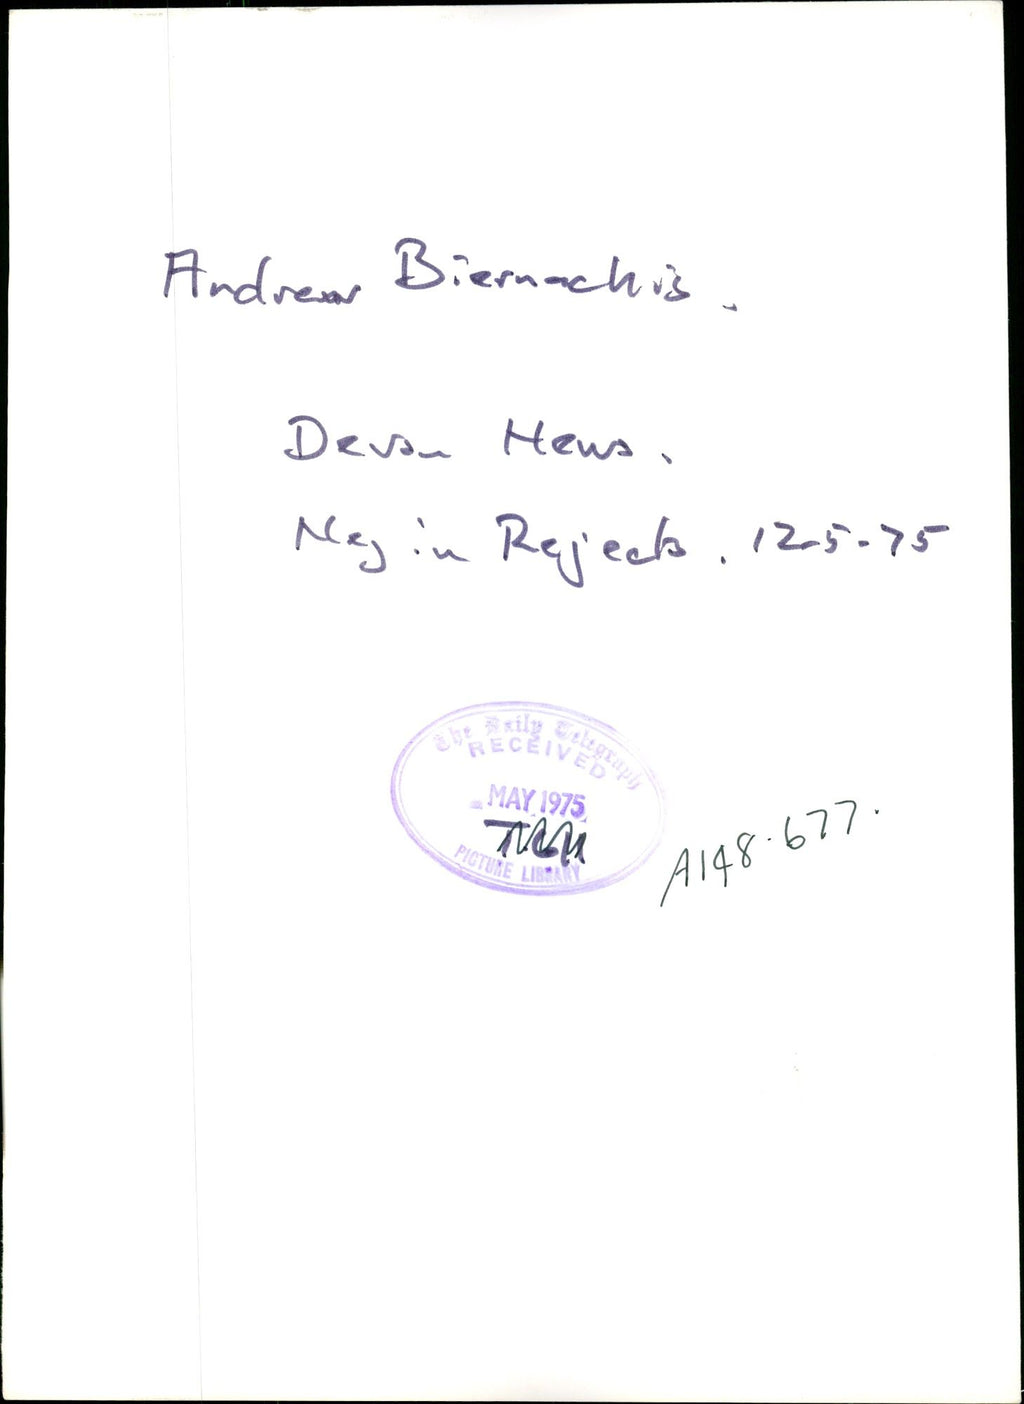 Andrew Biernackis.
Devon Mews.
Neg in Rejects. 12-5-75
The Daily Telegraph
RECEIVED
- MAY 1975
PICTURE LIBRARY
A148.677.